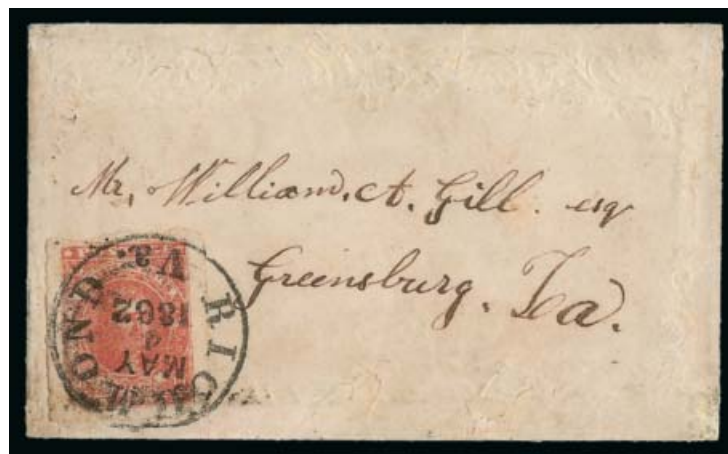 Mr. William. A. Gill. esq
Greensburg. La.
RICHMOND
Va.
MAY
4
1862